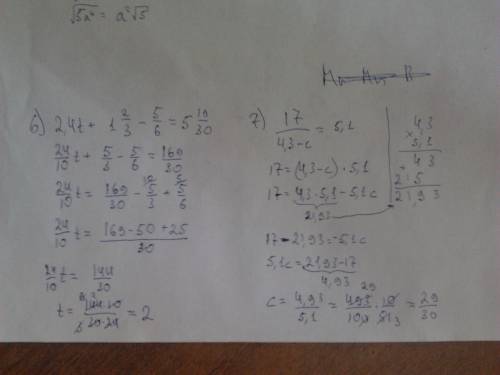 √5a⁴ = a²√5
6) 2,4t + 1 2/3 - 5/6 = 5 19/30
24/10 t + 5/3 - 5/6 = 169/30
24/10 t = 169/30 - 5/3 + 5/6
24/10 t = (169 - 50 + 25)/30
24/10 t = 144/30
t = 144·10/30·24 = 2
7) 17/(4,3-c) = 5,1
17 = (4,3-c) · 5,1
17 = 4,3·5,1 - 5,1c
21,93
17 - 21,93 = -5,1c
5,1c = 21,93 - 17
4,93
c = 4,93/5,1 = 493/100 · 10/51 = 29/30
4,3
× 5,1
+ 43
215
21,93